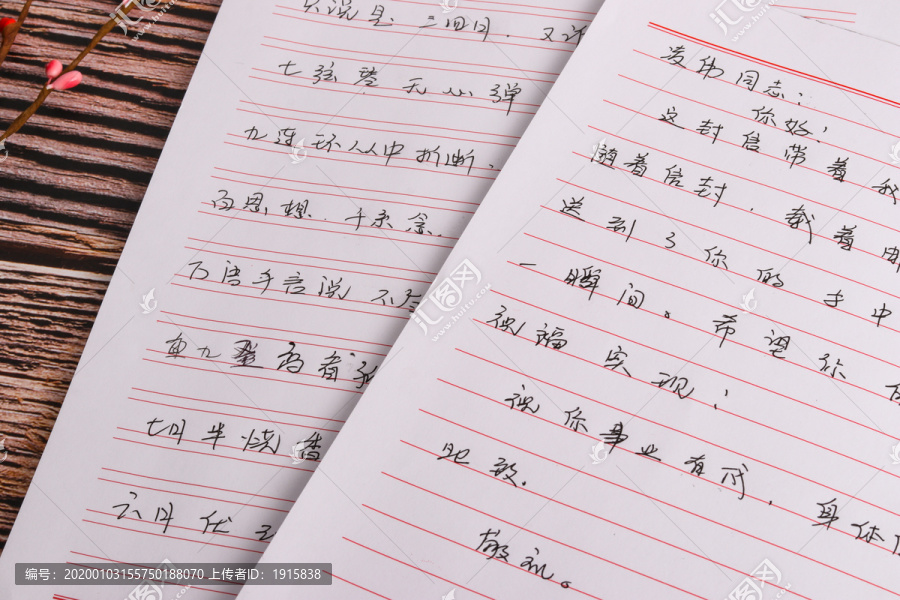 只说是三四月,又
七弦琴无心弹
九连环从中折断,
百思想,千系念,
万语千言说不
重九登高看
七月半烧香
六月伏天
凌伟同志:
你好!
这封信带着我
随着信封,载着
送到了你的手中
一瞬间。希望你
祝福实现!
祝你事业有成,身体
此致.
敬礼。
编号:20200103155750188070 上传者ID:1915838